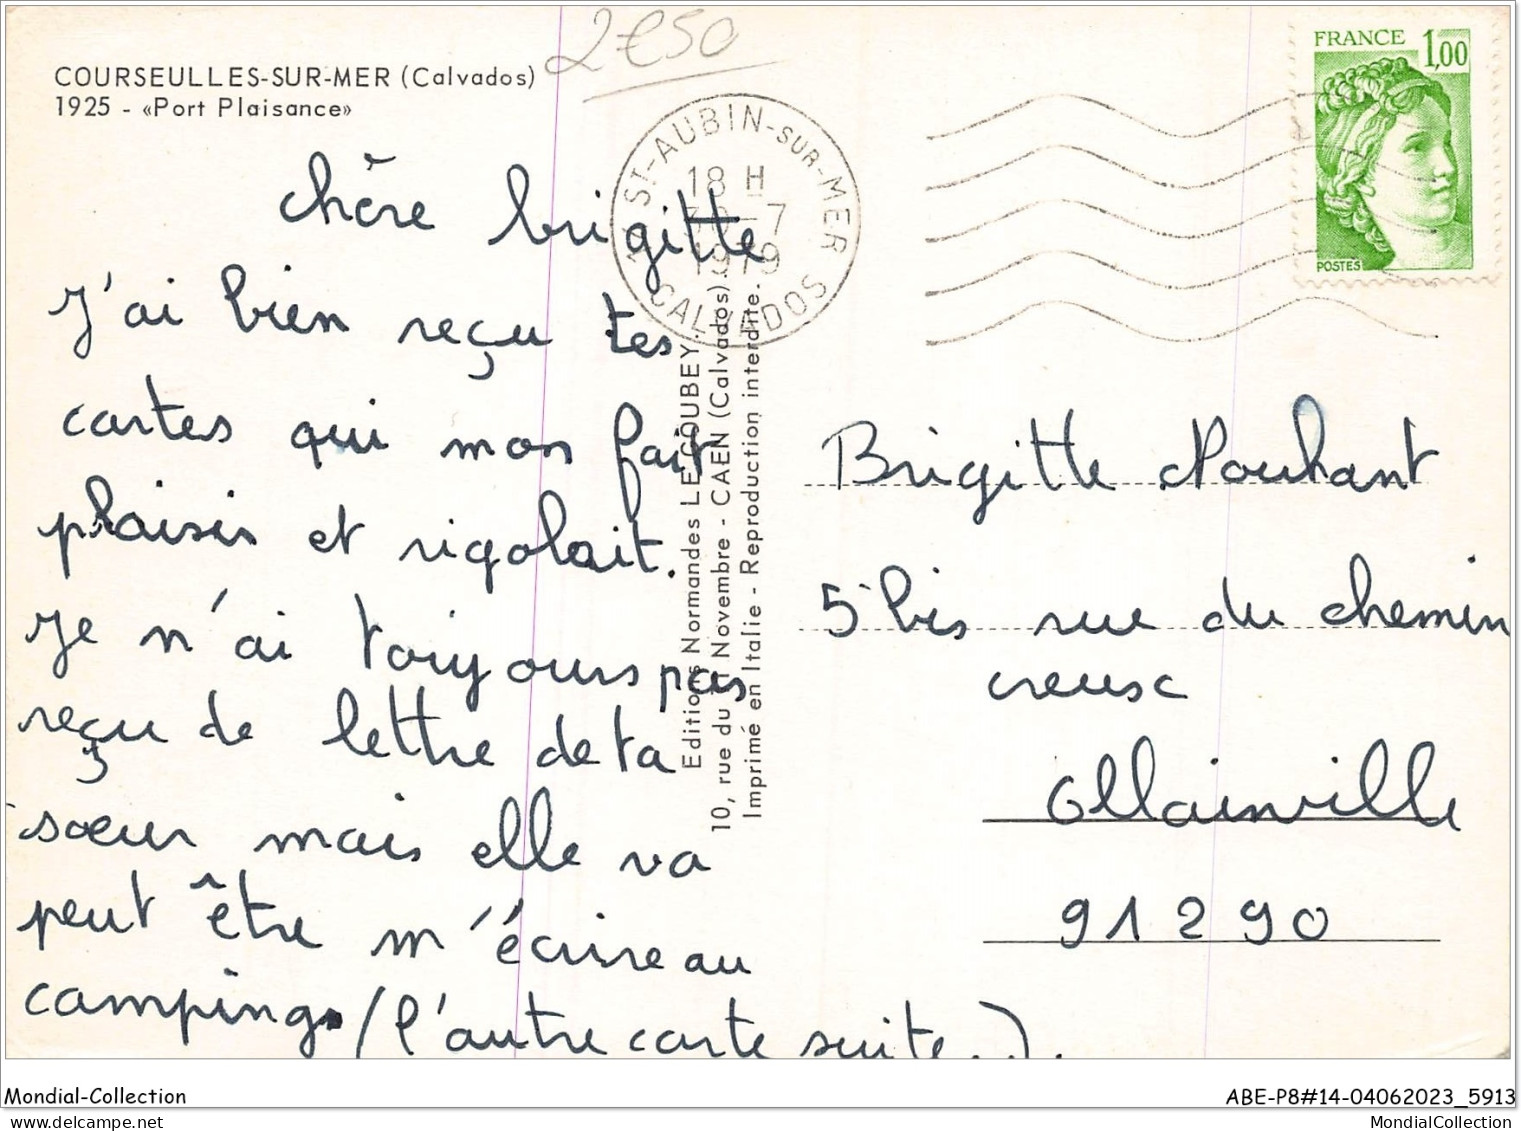 2€50
COURSEULLES-SUR-MER (Calvados)
1925 - «Port Plaisance»
FRANCE 1,00
POSTES
ST-AUBIN-SUR-MER
18 H
30-7
1979
CALVADOS
chère brigitte
J'ai bien reçu tes
cartes qui mon fait
plaisir et rigolait.
Je n'ai toujours pas
reçu de lettre de ta
sœur mais elle va
peut être m'écrire au
camping. (l'autre carte suite..).
Editions Normandes LE GOUBEY
10, rue du 11 Novembre - CAEN (Calvados).
Imprimé en Italie - Reproduction interdite.
Brigitte
5 bis rue du chemin
creuse
Ollainville
91290
Mondial-Collection
ABE-P8#14-04062023_5913
www.delcampe.net
MondialCollection